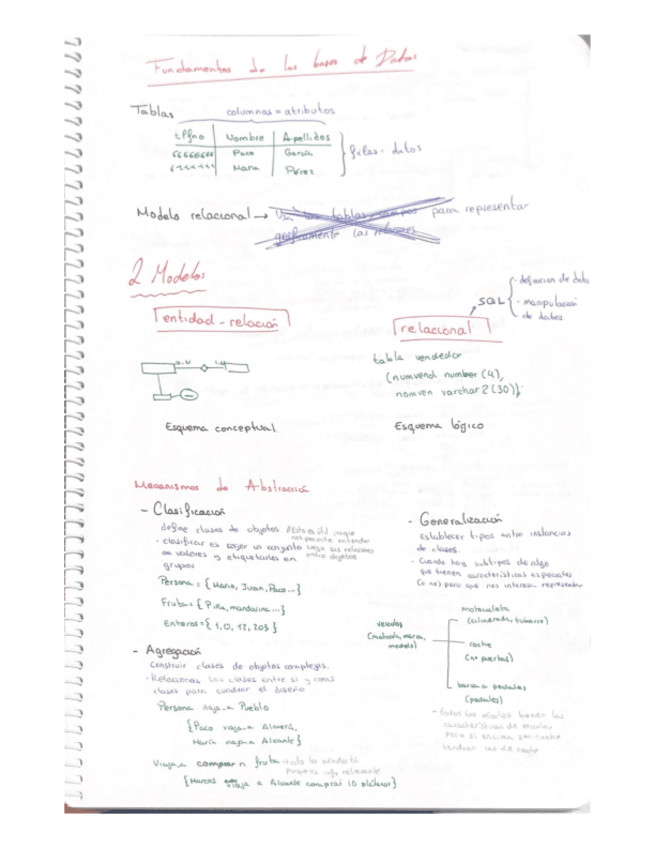 Fundamentos de las bases de Datos
Tablas
columnas = atributos
tlfno Nombre Apellidos
66666666 Paco García
María Pérez
filas = datos
Modelo relacional → para representar
gráficamente las
2 Modelos
entidad - relación
relacional
SQL
- definicion de datos
- manipulación
de datos
tabla vendedor
(numvend number (4),
nomven varchar2 (30));
Esquema conceptual
Esquema lógico
Mecanismos de Abstracción
- Clasificación
define clases de objetos
nos permite entender
· clasificar es coger un conjunto luego sus relaciones
de valores y etiquetarlos en entre objetos
grupos
Persona = {María, Juan, Paco...}
Fruta = {Piña, mandarina...}
Enteros = {1, 0, 12, 203}
- Agregación
Construir clases de objetos complejas.
· Relacionas las clases entre si y
clases para cuadrar el diseño
Persona viaja a Pueblo
{Paco viaja a Almería,
María viaja a Alicante}
Viaja a comprar n fruta
info relevante
{Marcos viaja a Alicante comprar 10 plátanos}
- Generalización
Establecer tipos entre instancias
de clases.
- Cuando hay subtipos de algo
que tienen características especiales
(o no) pero que nos interesa representar
vehículos
(matrícula, marca,
modelo)
motocicleta
(cilindrada, tubarro)
coche
(nº puertas)
barca a pedales
(pedales)
- todos los vehículos tienen las
características de
pero si encima son coche
tendrán las de coche